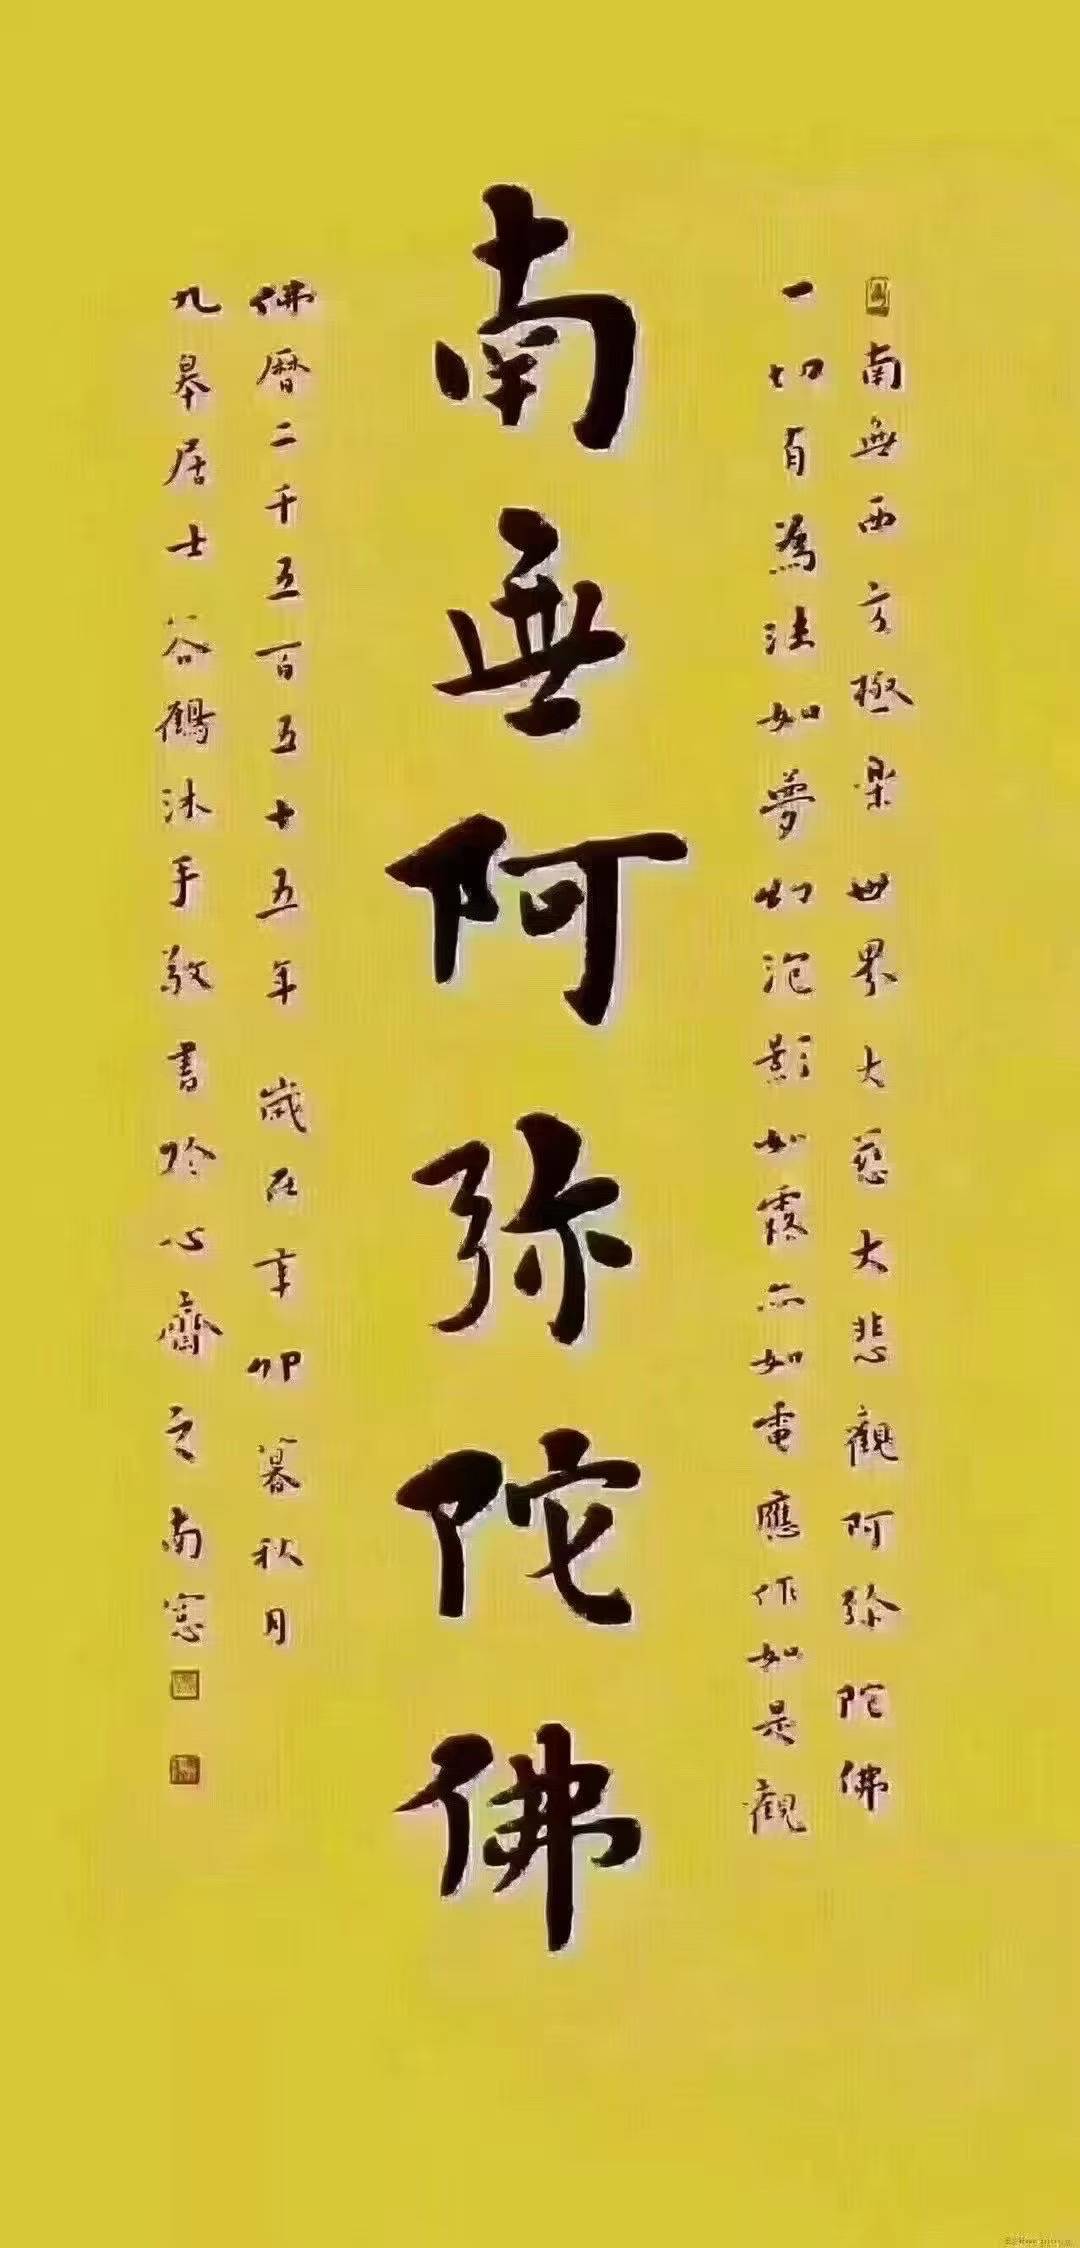 南無西方極楽世界大慈大悲觀阿弥陀佛
一切有為法如夢幻泡影如露亦如電應作如是觀
南無阿弥陀佛
佛曆二千五百五十五年歲在辛卯暮秋月
九皋居士谷鶴沐手敬書於心齋之南窓